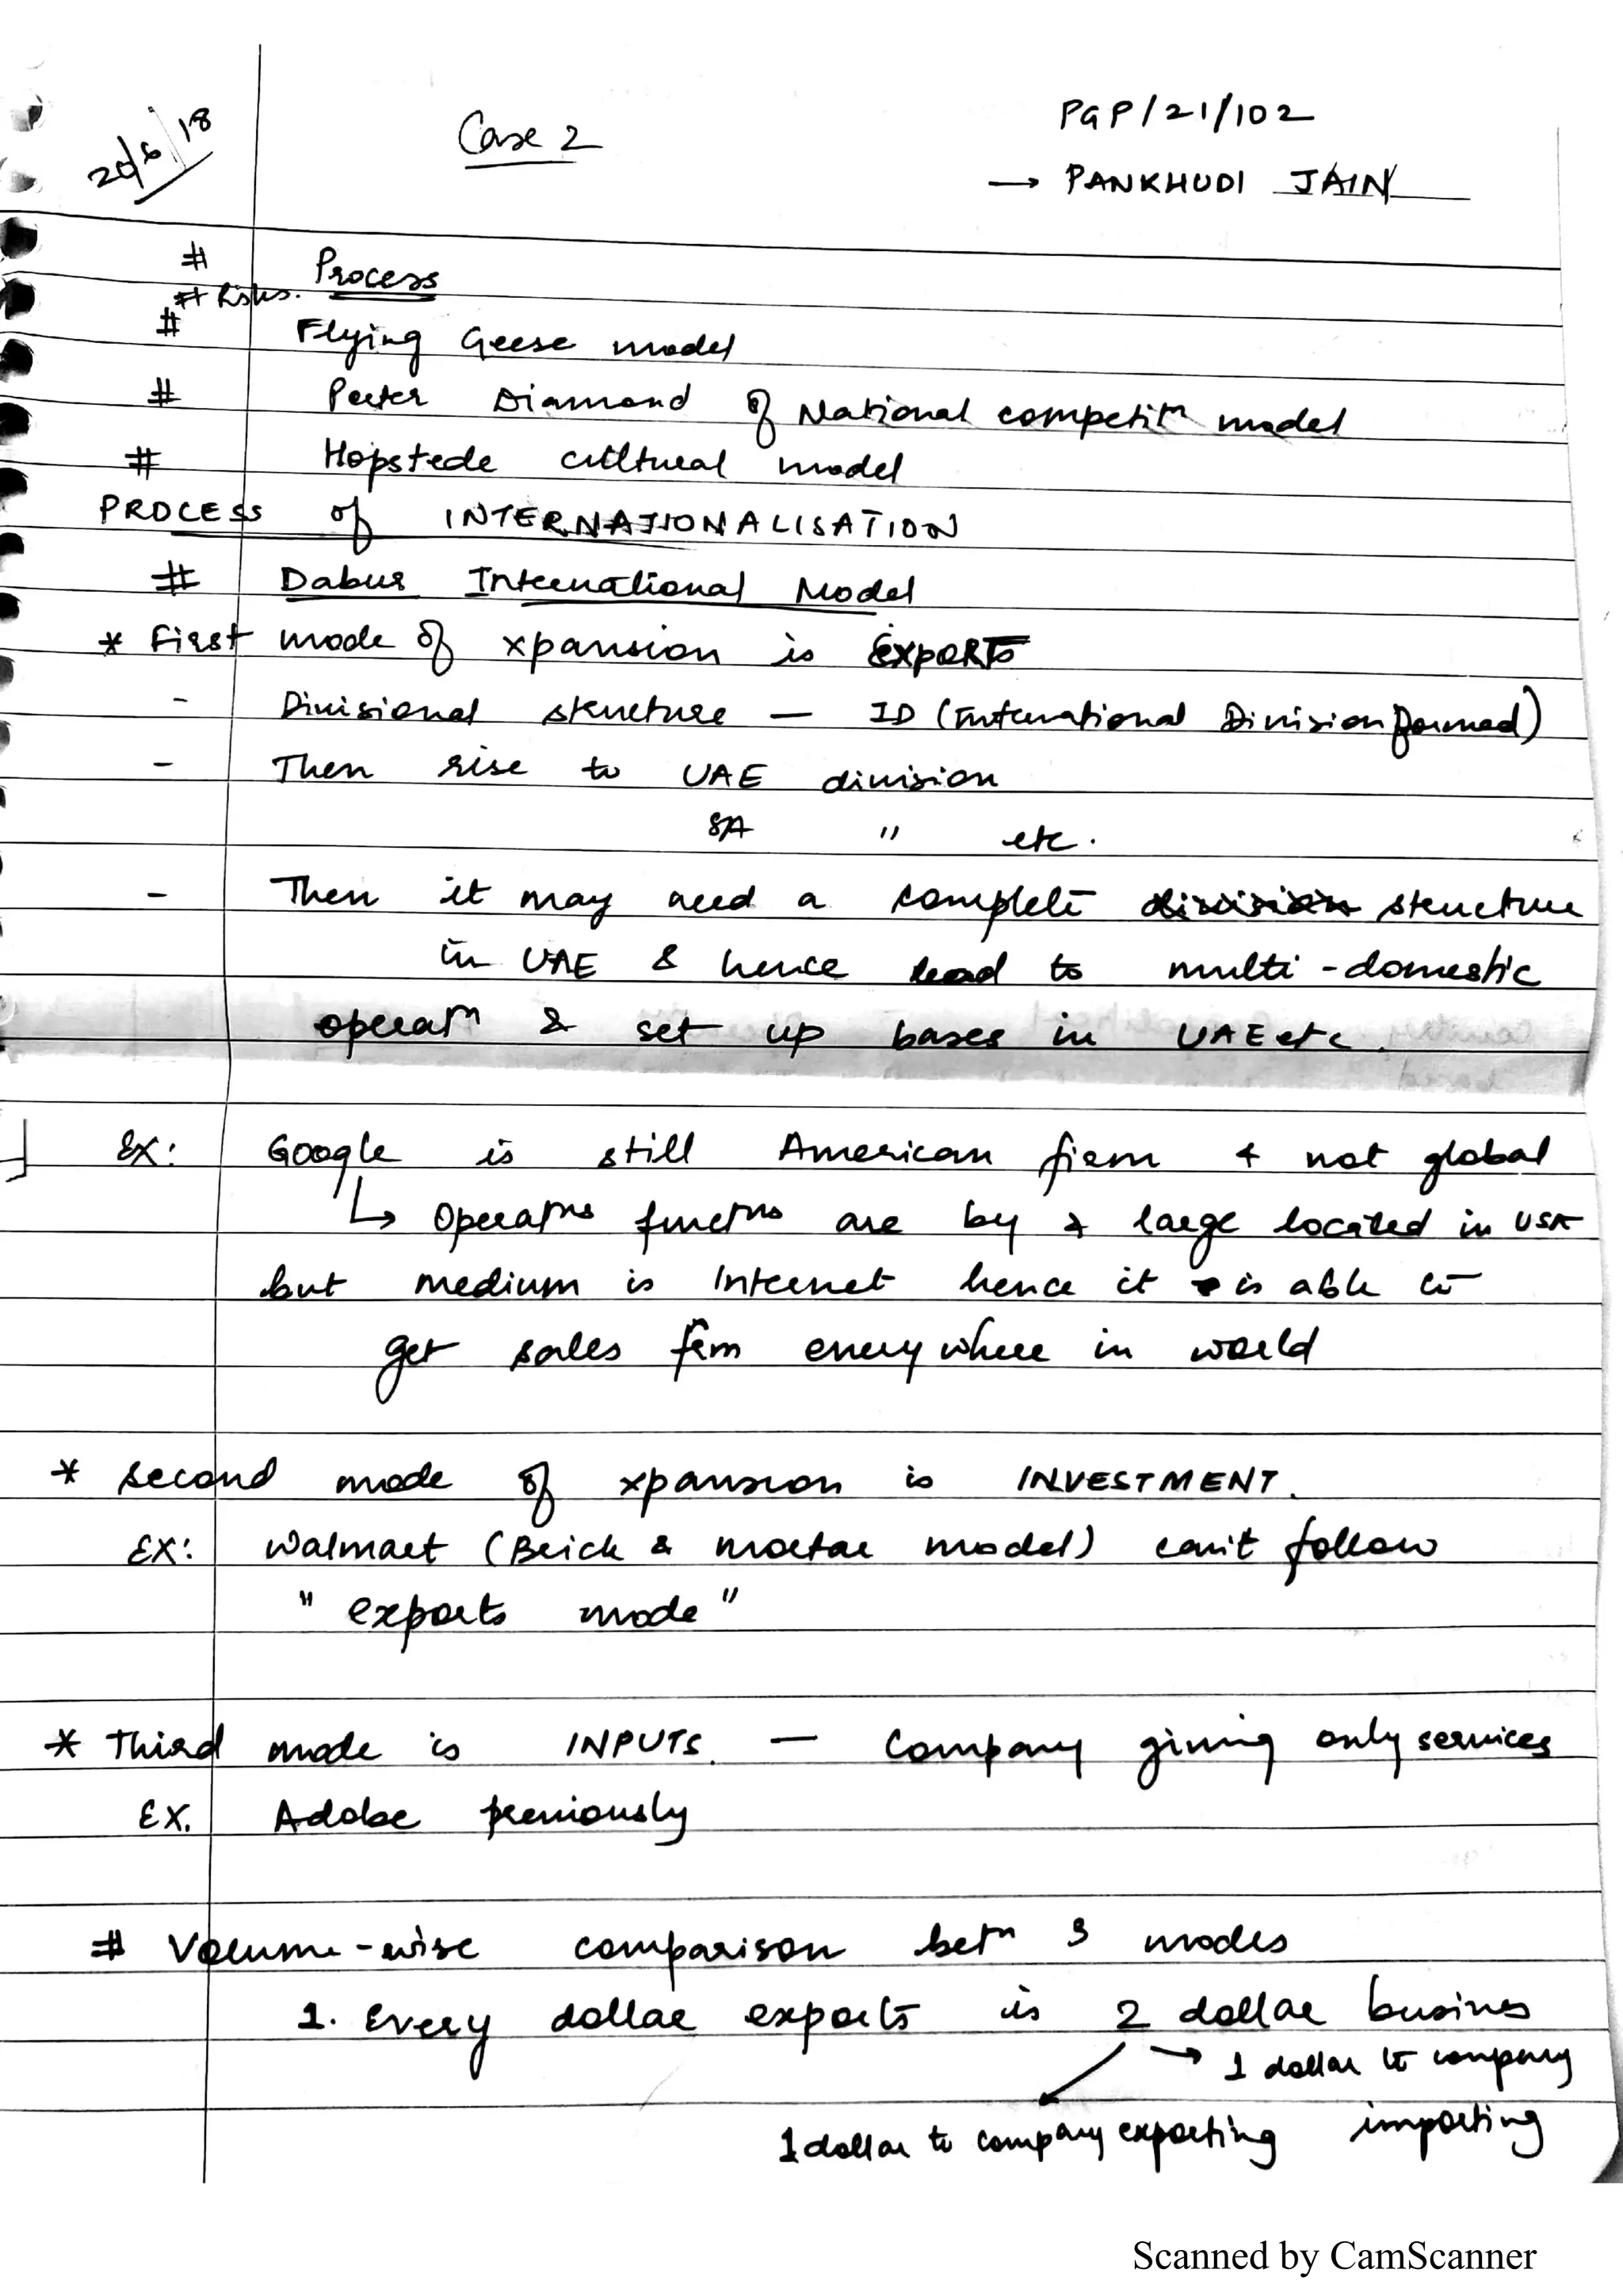 20/6/18
Case 2
PGP/21/102
→ PANKHUDI JAIN
# Process
# Risks.
# Flying Geese model
# Porter Diamond of National competitn model
# Hopstede cultural model
PROCESS of INTERNATIONALISATION
# Dabur International Model
* First mode of xpansion is EXPORTS
- Divisional structure — ID (International Division formed)
- Then rise to UAE division
SA " etc.
- Then it may need a complete division structure
in UAE & hence lead to multi-domestic
operatn & set up bases in UAE etc.
Ex: Google is still American firm & not global
↳ Operatns functns are by & large located in USA
but medium is Internet hence it is able to
get sales frm everywhere in world
* Second mode of xpansion is INVESTMENT.
EX: Walmart (Brick & mortar model) can't follow
"exports mode"
* Third mode is INPUTS. — Company giving only services
EX. Adobe previously
# Volume-wise comparison betn 3 modes
1. Every dollar exports is 2 dollar busines
→ 1 dollar to company
importing
1 dollar to company exporting
Scanned by CamScanner